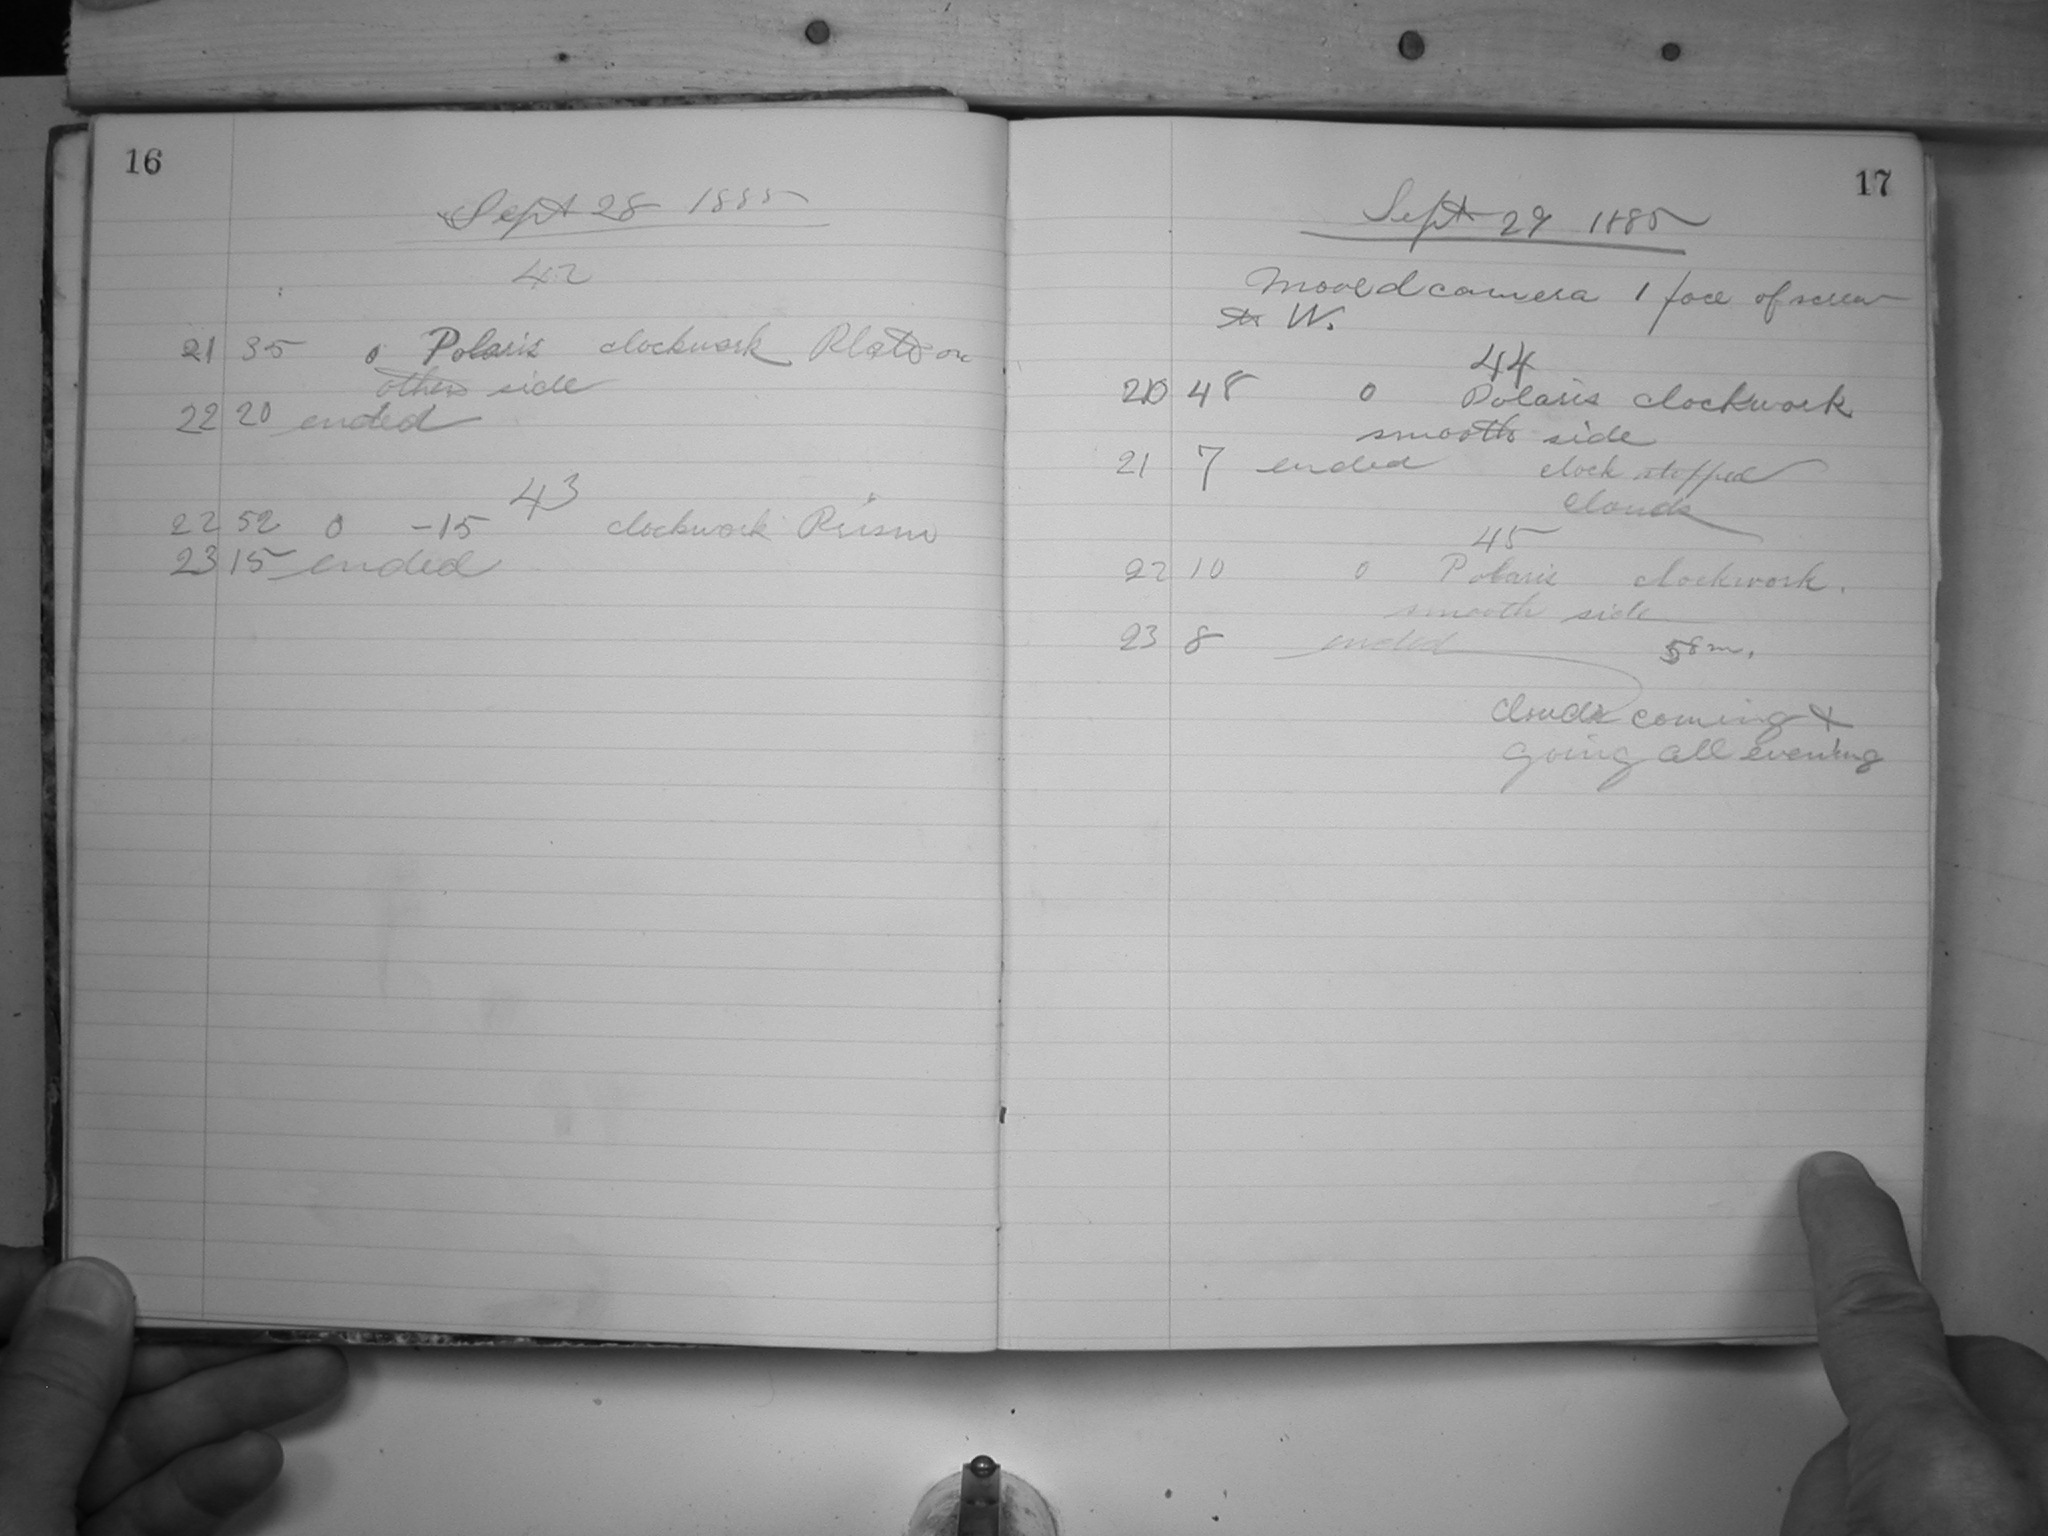 16
Sept 28 1885
42
21 35 0 Polaris clockwork Plate on
other side
22 20 ended
43
22 52 0 -15 clockwork Prism
23 15 ended
17
Sept 29 1885
Moved camera 1 face of screw
to W.
44
20 48 0 Polaris clockwork
smooth side
21 7 ended clock stopped
clouds
45
22 10 0 Polaris clockwork.
smooth side
23 8 ended 58m.
clouds coming &
going all evening